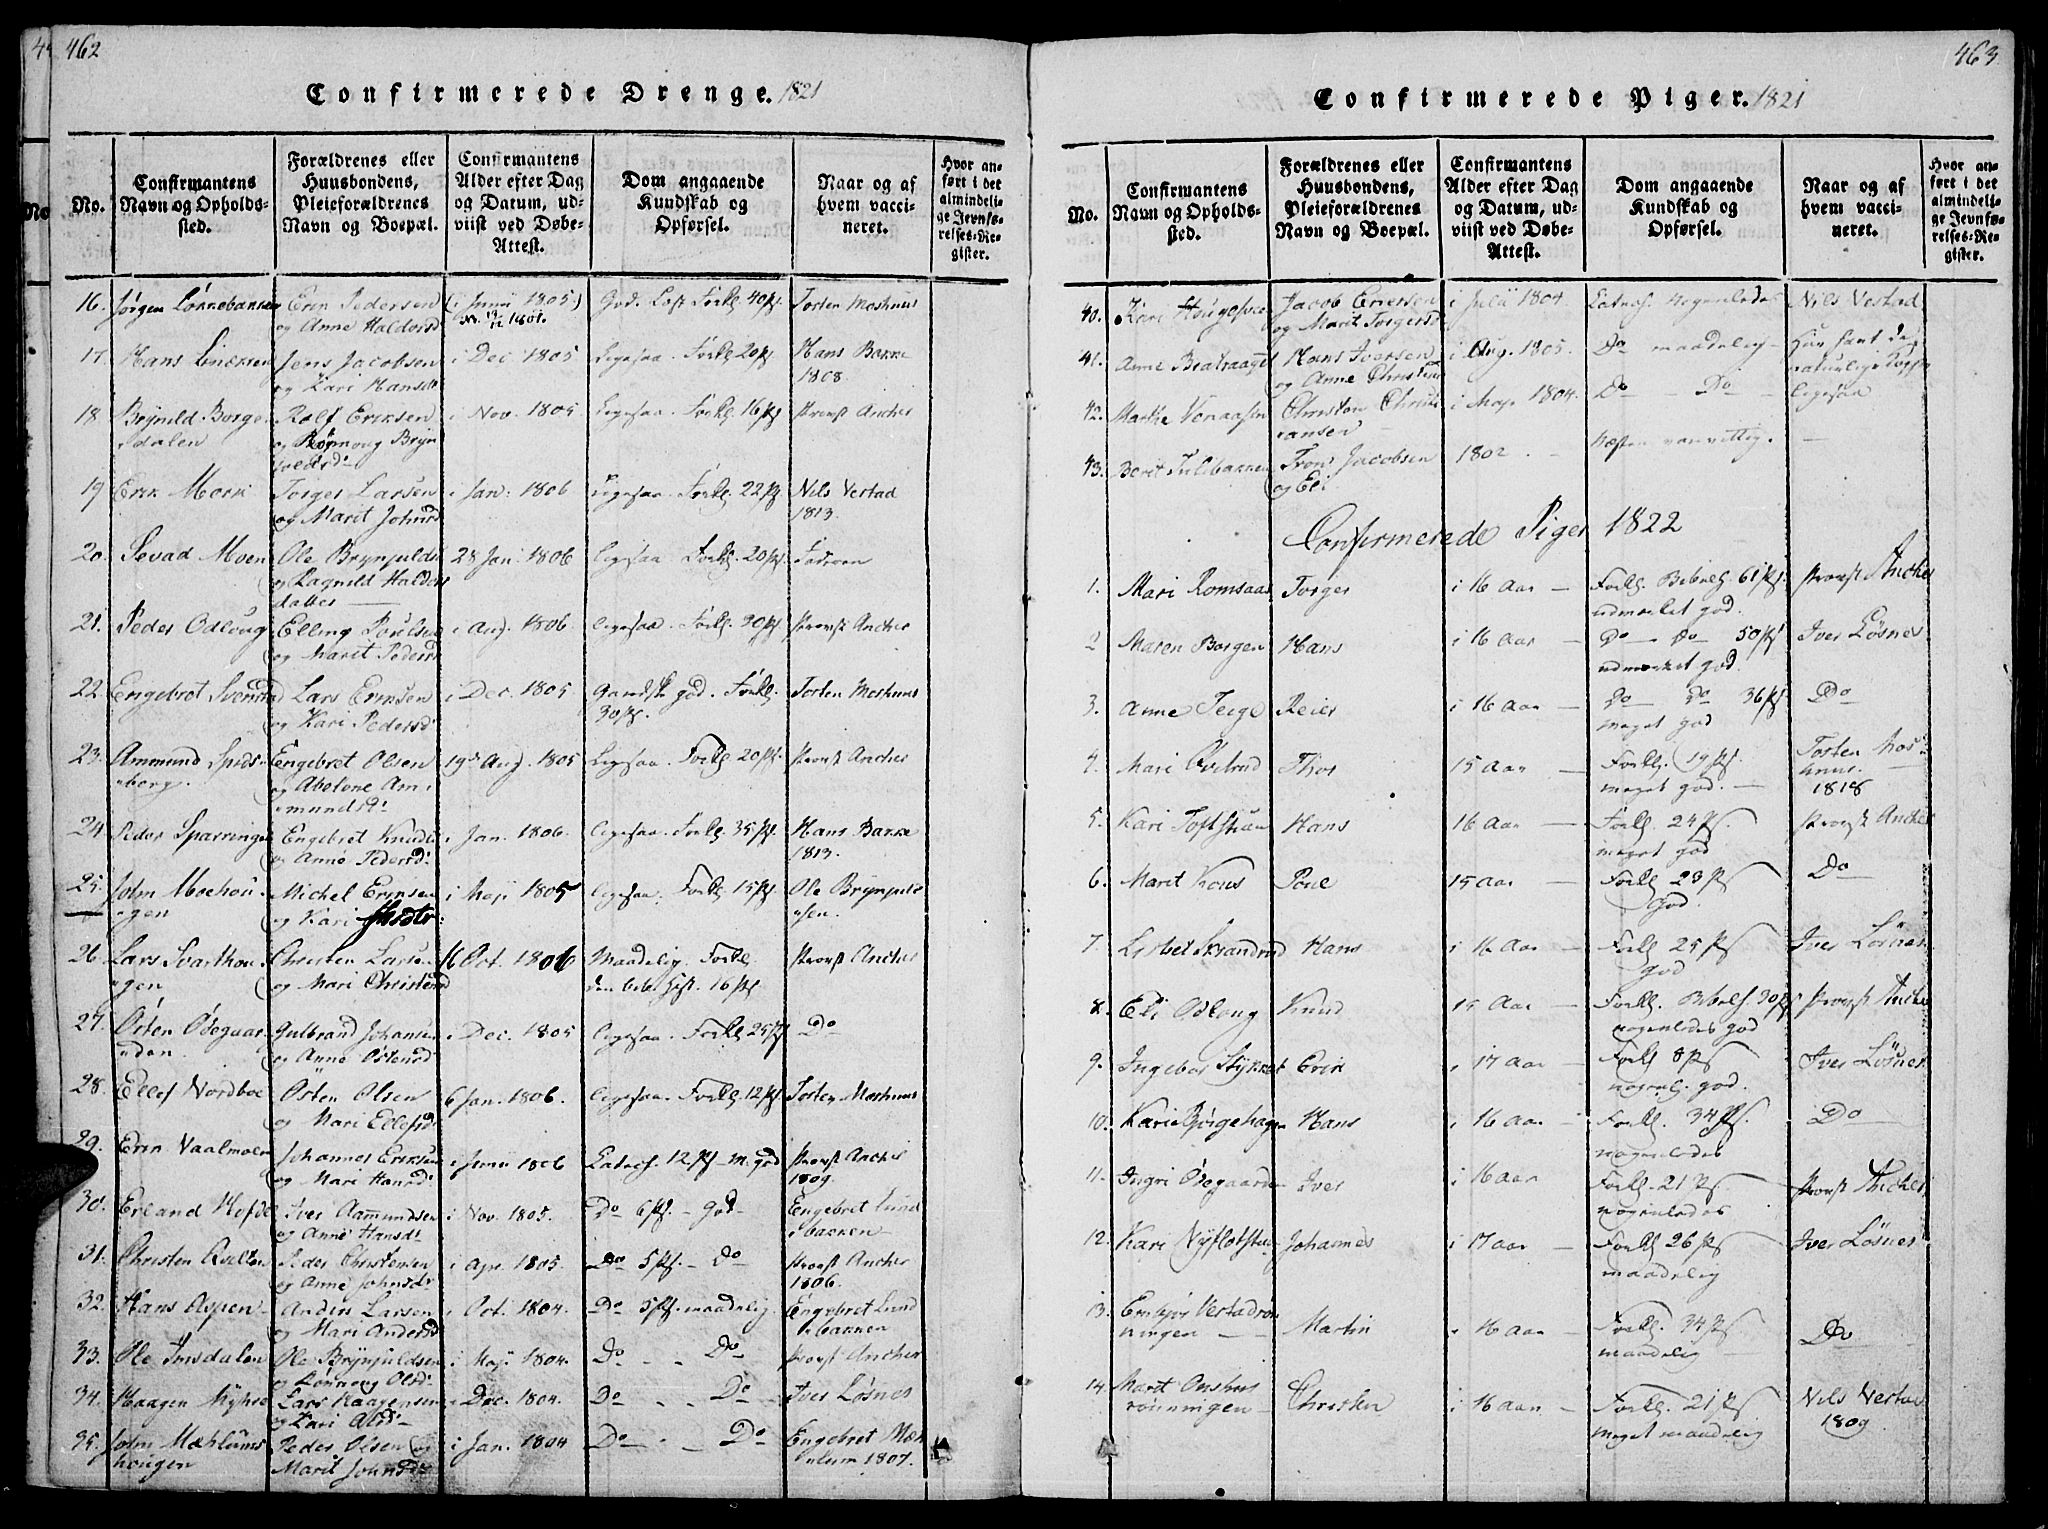 462
Confirmerede Drenge. 1821
No.
Confirmantens Navn og Opholdssted.
Forældrenes eller Huusbondens, Pleieforældrenes Navn og Boepæl.
Confirmantens Alder efter Dag og Datum, udviist ved Døbe-Attest.
Dom angaaende Kundskab og Opførsel.
Naar og af hvem vaccineret.
Hvor anført i det almindelige Jevnførelses-Register.
16. Jørgen Løkkebakken Erik Pedersen og Anne Haldorsd (i Junii 1805) God. Forkl. 40 ps. Torten Moshuus
17 Hans Jens Jacobsen og Kari Hansd: i Dec 1805 Ligesaa. Forkl. 20 ps Hans Bakke 1808.
18 Brynild Borgedalen Rolf Eriksen og Rønnoug Brynildsd: i Nov. 1805 Ligesaa Forkl. 16 ps Provst Ancher
19 Erik Morki Torger Larsen og Marit Johnsd i Jan: 1806 Ligesaa. Forkl. 22 ps Nils Vestad 1813.
20. Sevad Moen Ole Brynjulds og Ragnild Haldorsdatter 28 Jan: 1806 Ligesaa Forkl. 20 ps. Faderen
21. Peder Odloug Elling Poulsen og Marit Pedersd i Aug. 1806. Ligesaa. Forkl. 30 ps. Provst Ancher
22. Engebret Svenstad Lars Eriksen og Kari Pedersd: i Dec. 1805. Gandsk god. Forkl. 30 ps. Torten Moshuus
23. Ammund Spidsberg. Engebret Olsen og Abelone Ammundsd: 19de Aug. 1805 Ligesaa. Forkl. 20 ps. Provst Ancher
24. Peder Sparringe Engebret Knuds og Anne Pedersd: i Jan. 1806. Ligesaa. Forkl. 35 ps. Hans Bakke 1813.
25. John Moehougen Michel Eriksen og Kari i Maji 1805 Ligesaa. Forkl. 15 ps. Ole Brynjulsen.
26. Lars Svarthougen Christen Larsen og Mari Christensd 16 Oct. 1806 Maadelig. Forkl. den bib. Hist. 16 ps Provst Ancher
27. Østen Ødegaarduden. Gulbrand Johansen og Anne Østensd i Dec. 1805 Ligesaa. Forkl. 25 ps Do
28. Ellef Nordboe Østen Olsen og Mari Ellefsd: 6 Jan. 1806. Ligesaa. Forkl. 12 ps. Torten Moshuus
29. Erik Vaalmoen Johannes Eriksen og Mari Hansd: i Junii 1806 Catech. 12 ps - m. god Provst Ancher 1809.
30. Erland Hofde Iver Aammundsen og Anne Hansd: i Nov. 1805. Do 6 ps. - god Engebret Lundsbakken
31. Christen Qvilten Peder Christensen og Anne Johnsd: i Apr. 1805. Do 5 ps. - Do Provst Ancher 1806.
32. Hans Aspen Anders Larsen og Mari Andersd i Oct. 1804. Do 5 ps. maadelig Engebret Lundsbakken
33. Ole Insdalen Ole Brynjuldsen og Rønnoug Olsd: i Maji 1804. Do - - Do Provst Ancher
34. Haagen Myhre Lars Haagensen og Kari Olsd: i Dec. 1804. Do - - Do Iver Løsnes
35. John Mæhlumshougen Peder Olsen og Marit Johnsd: i Jan. 1804 Do - - Do Engebret Mæhlum 1807.
463
Confirmerede Piger. 1821
No.
Confirmantens Navn og Opholdssted.
Forældrenes eller Huusbondens, Pleieforældrenes Navn og Boepæl.
Confirmantens Alder efter Dag og Datum, udviist ved Døbe-Attest.
Dom angaaende Kundskab og Opførsel.
Naar og af hvem vaccineret.
Hvor anført i det almindelige Jevnførelses-Register.
40. Kari Jacob Eriksen og Marit Torgersd i Julii 1804. Catech. Nogenledes Nils Vestad
41. Anne Hans Iversen og Anne Christensd i Aug. 1805. Do maadelig - Hun havt de naturlige Kopper
42. Marthe Christen Christiansen i Maji 1804. Do - Do - ligesaa
43. Berit Tulsbakken Trond Jacobsen og Eli 1802. - Næsten vanvittig. -
Confirmerede Piger 1822
1. Mari Romsaas Torger i 16 Aar - Forkl. Bibelh. 61 ps. udmærket god. Provst Ancher
2 Maren Borgen Hans i 16 Aar - Do - Do 50 ps udmærket god. Iver Løsnes
3. Anne Teige Reier i 16 Aar - Do Do 36 ps meget god Do
4. Mari Øvrelid Thor 15 Aar - Forkl. 19 ps. meget god. - Torten Moshuus. 1818
5. Kari Toftstuen Hans 16 Aar - Forkl. 24 ps. meget god Provst Ancher
6. Marit Kous Poul 15 Aar - Forkl. 23 ps God. Do
7. Lisbet Skrandrud Hans i 16 Aar - Forkl 25 ps God Iver Løsnes
8. Eli Odloug Knud 15 Aar - Forkl. Bibelh. 30 ps nogenledes god Provst Ancher
9. Ingebor Stykket Erik i 17 Aar - Forkl 8 ps nogenl. god. Iver Løsnes
10. Kari Bjørgehagen Hans i 16 Aar - Forkl. 34 ps. nogenledes Do
11. Ingri Ødegaarden Iver i 16 Aar Forkl. 21 ps. nogenledes Provst Ancher
12. Kari Nyflotstuen Johannes i 17 Aar - Forkl 26 ps maadelig Iver Løsnes
13. Vestadrønningen - Martin i 16 Aar - Forkl. 34 ps. maadelig - Do
14. Marit Onshusrønningen - Christen i 16 Aar - Forkl. 21 ps meget maadelig Nils Vestad 1809